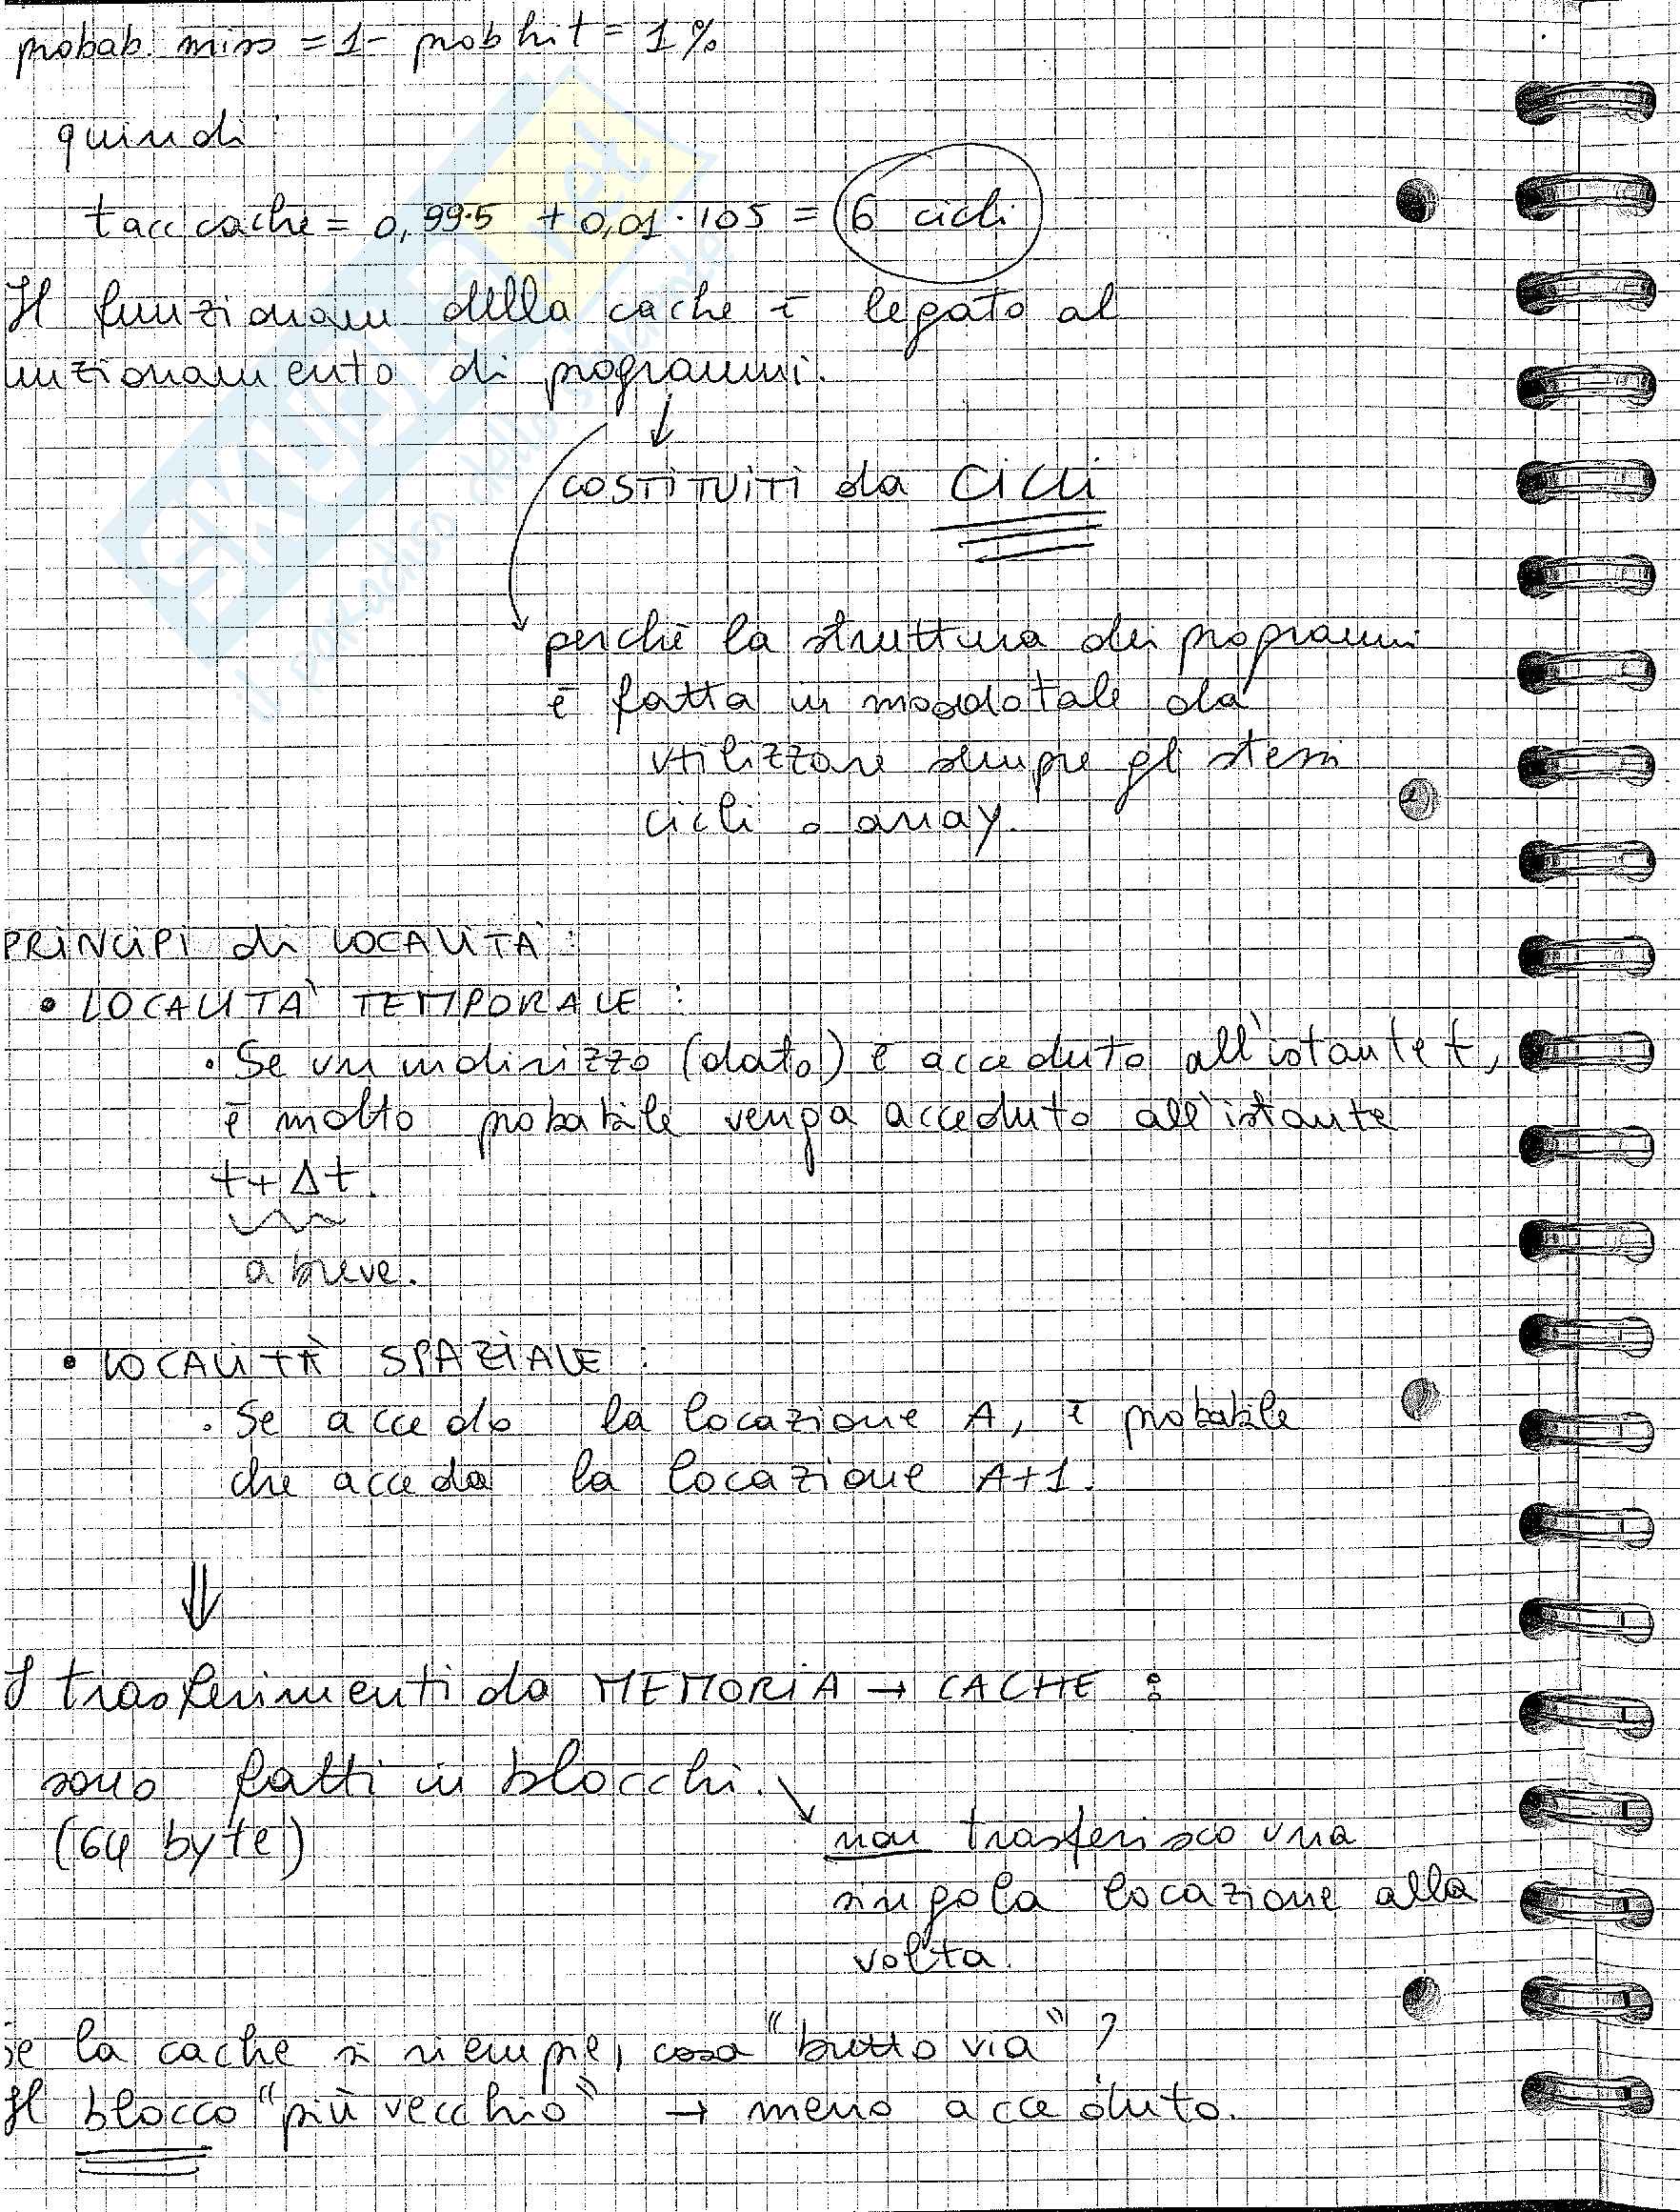 probab. miss = 1 - prob hit = 1%
quindi:
tacc cache = 0,99·5 + 0,01·105 = 6 cicli
Il funzionam della cache è legato al
unzionamento di programmi.
↓
COSTITUITI da CICLI
perchè la struttura dei programmi
è fatta in modo tale da
utilizzare sempre gli stessi
cicli o array.
PRINCIPI di LOCALITA':
• LOCALITA' TEMPORALE:
· Se un indirizzo (dato) è acceduto all'istante t,
è molto probabile venga acceduto all'istante
t + Δt.
a breve.
• LOCALITÀ SPAZIALE:
· Se accedo la locazione A, è probabile
che acceda la locazione A+1.
⇓
I trasferimenti da MEMORIA → CACHE:
sono fatti in blocchi.
(64 byte)
non trasferisco una
singola locazione alla
volta.
Se la cache si riempie, cosa "butto via"?
Il blocco "più vecchio" → meno acceduto.
SKUOLA.net
il paradiso dello studente